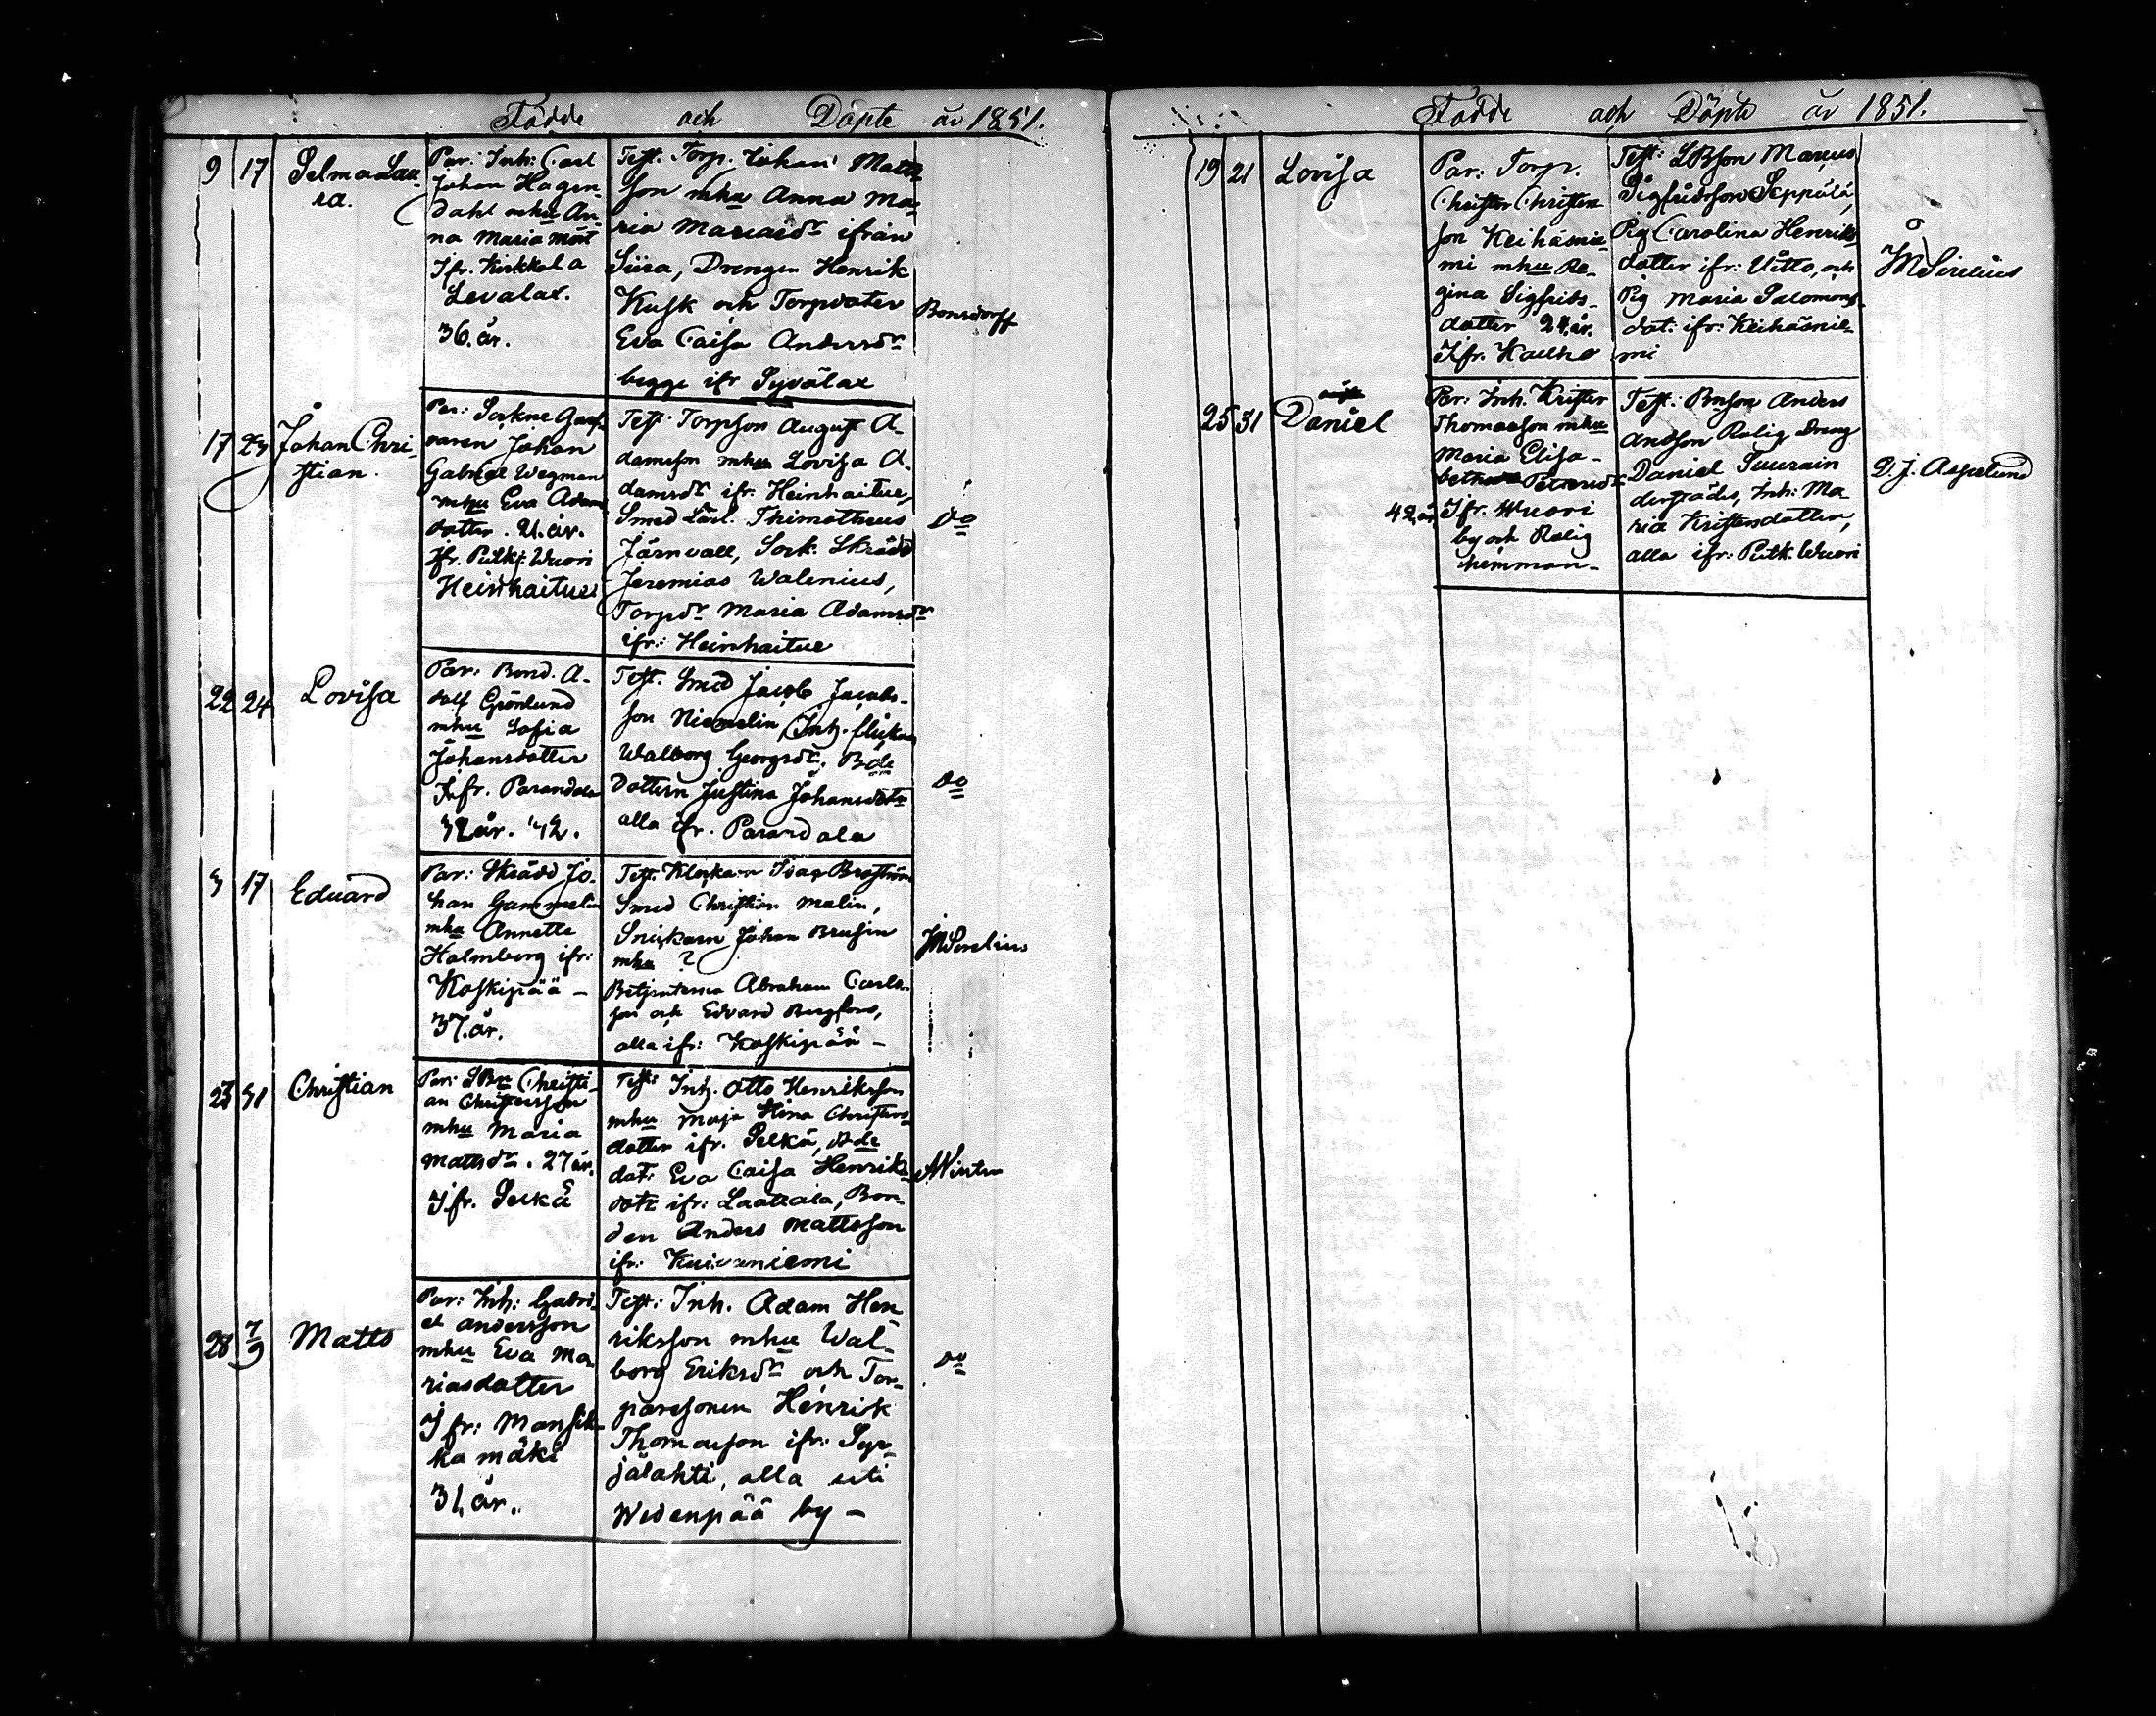 Födde och Döpte år 1851.
9 17 Selma Lau-
ra.
Par: Inh: Carl
Johan Hagen-
dahl mhu An-
na Maria Mårt
Ifr. Kirkkola
Levalax.
36. år.
Test. Torp. Johan Matts
son mhu Anna Ma-
ria Mariædr ifrån
Siira, Drengen Henrik
Kusk och Torpdotter
Eva Caisa Andersdr
begge ifr Syvälax
Bonsdorff
17 23 Johan Chri-
stian.
Par: Sockne Garf-
varen Johan
Gabriel Wegman
mhu Eva Adams
dotter. 21. år.
ifr. Pulkj: Wuori
Heinhaitue
Test. Torpson August A-
damsson mhu Lovisa A-
damsdr ifr. Heinhaitue,
Smed Lärl. Thimotheus
Järnvall, Sock. Skrädd
Jeremias Walenius,
Torpdr Maria Adamsdr
ifr: Heinhaitue
do
22 24 Lovisa
Par: Bond. A-
dolf Grönlund
mhu Sofia
Johansdotter
Ifr. Parandala
32 år. 42.
Test. Smed Jacob Jacobs-
son Niemelin, Inh. flickan
Walborg Georgsdr, Bde
Dottern Justina Johansdotr
alla ifr. Parandala
do
3 17 Eduard
Par: Skrädd Jo-
han Gammelin
mhu Annette
Holmberg ifr:
Koskipää -
37. år.
Test. Klockarn Isac Broström
Smed Christian Malin,
Snickarn Johan Brusin
mhu ?
Betjenterna Abraham Carls-
son och Edvard Bergfors,
alla ifr: Koskipää -
JM Sirelius
23 31 Christian
Par: LBn Christi-
an Christersson
mhu Maria
Mattsdr. 27 år.
Ifr. Selkä
Test: Inh. Otto Henriksson
mhu Maja Stina Christers
dotter ifr. Selkä, Bde
dot: Eva Caisa Henriks
dotr ifr: Laattala, Bon-
den Anders Mattsson
ifr: Kuivaniemi
AWinter
28 7/9 Matts
Par: Inh: Gabri-
el Andersson
mhu Eva Ma-
riasdotter
Ifr: Mansik-
kamäki
31, år.
Test: Inh. Adam Hen-
riksson mhu Wal-
borg Eriksdr och Tor-
paresonen Henrik
Thomasson ifr: Syr-
jälahti, alla uti
Wedenpää by -
do
Födde och Döpte år 1851.
19 21 Lovisa
Par: Torp.
Christer Christers
son Keihäsnie-
mi mhu Re-
gina Sigfrids-
dotter 24. år.
Ifr. Kaelko
Test: LBson Marcus
Sigfridsson Seppälä,
Pig Carolina Henriks
dotter ifr: Uitto, och
Pig Maria Salomons-
dot: ifr: Keihäsnie-
mi
JM Sirelius
25 31 Daniel
Par: Inh. Krister
Thomasson mhu
Maria Elisa-
beth Pettersdr
42 år Ifr. Wuori
by och Rolig
hemman-
Test: Bnson Anders
Andsson Rolig Dreng
Daniel Suurain
derstädes, Inh: Ma
ria Kristersdotter,
alla ifr: Pulk. Wuori
D. J. Aspelund